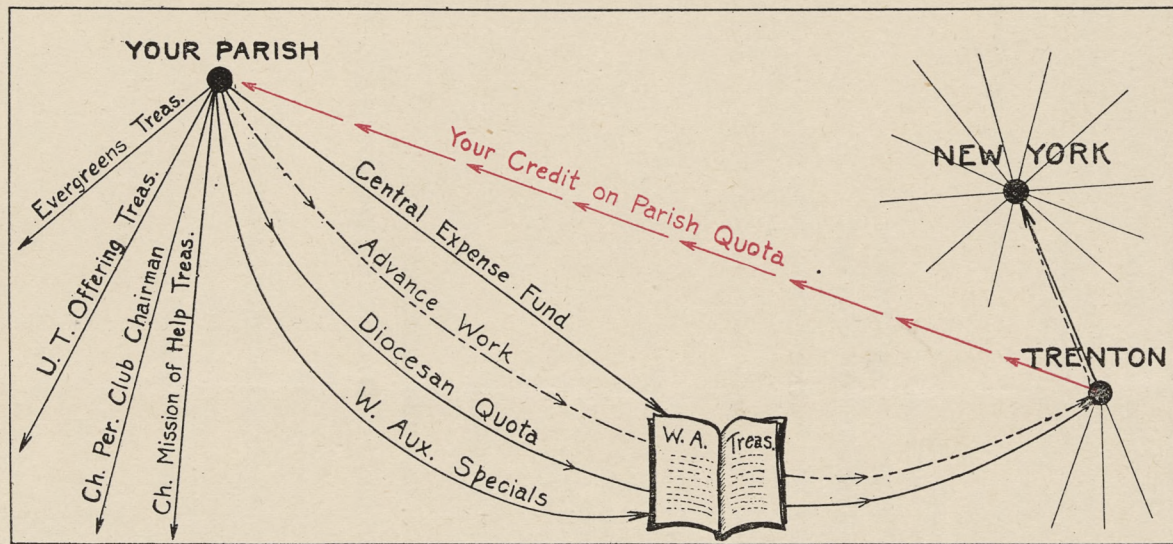 YOUR PARISH
NEW YORK
TRENTON
Your Credit on Parish Quota
Evergreens Treas.
U. T. Offering Treas.
Ch. Per. Club Chairman
Ch. Mission of Help Treas.
Central Expense Fund
Advance Work
Diocesan Quota
W. Aux. Specials
W. A. Treas.